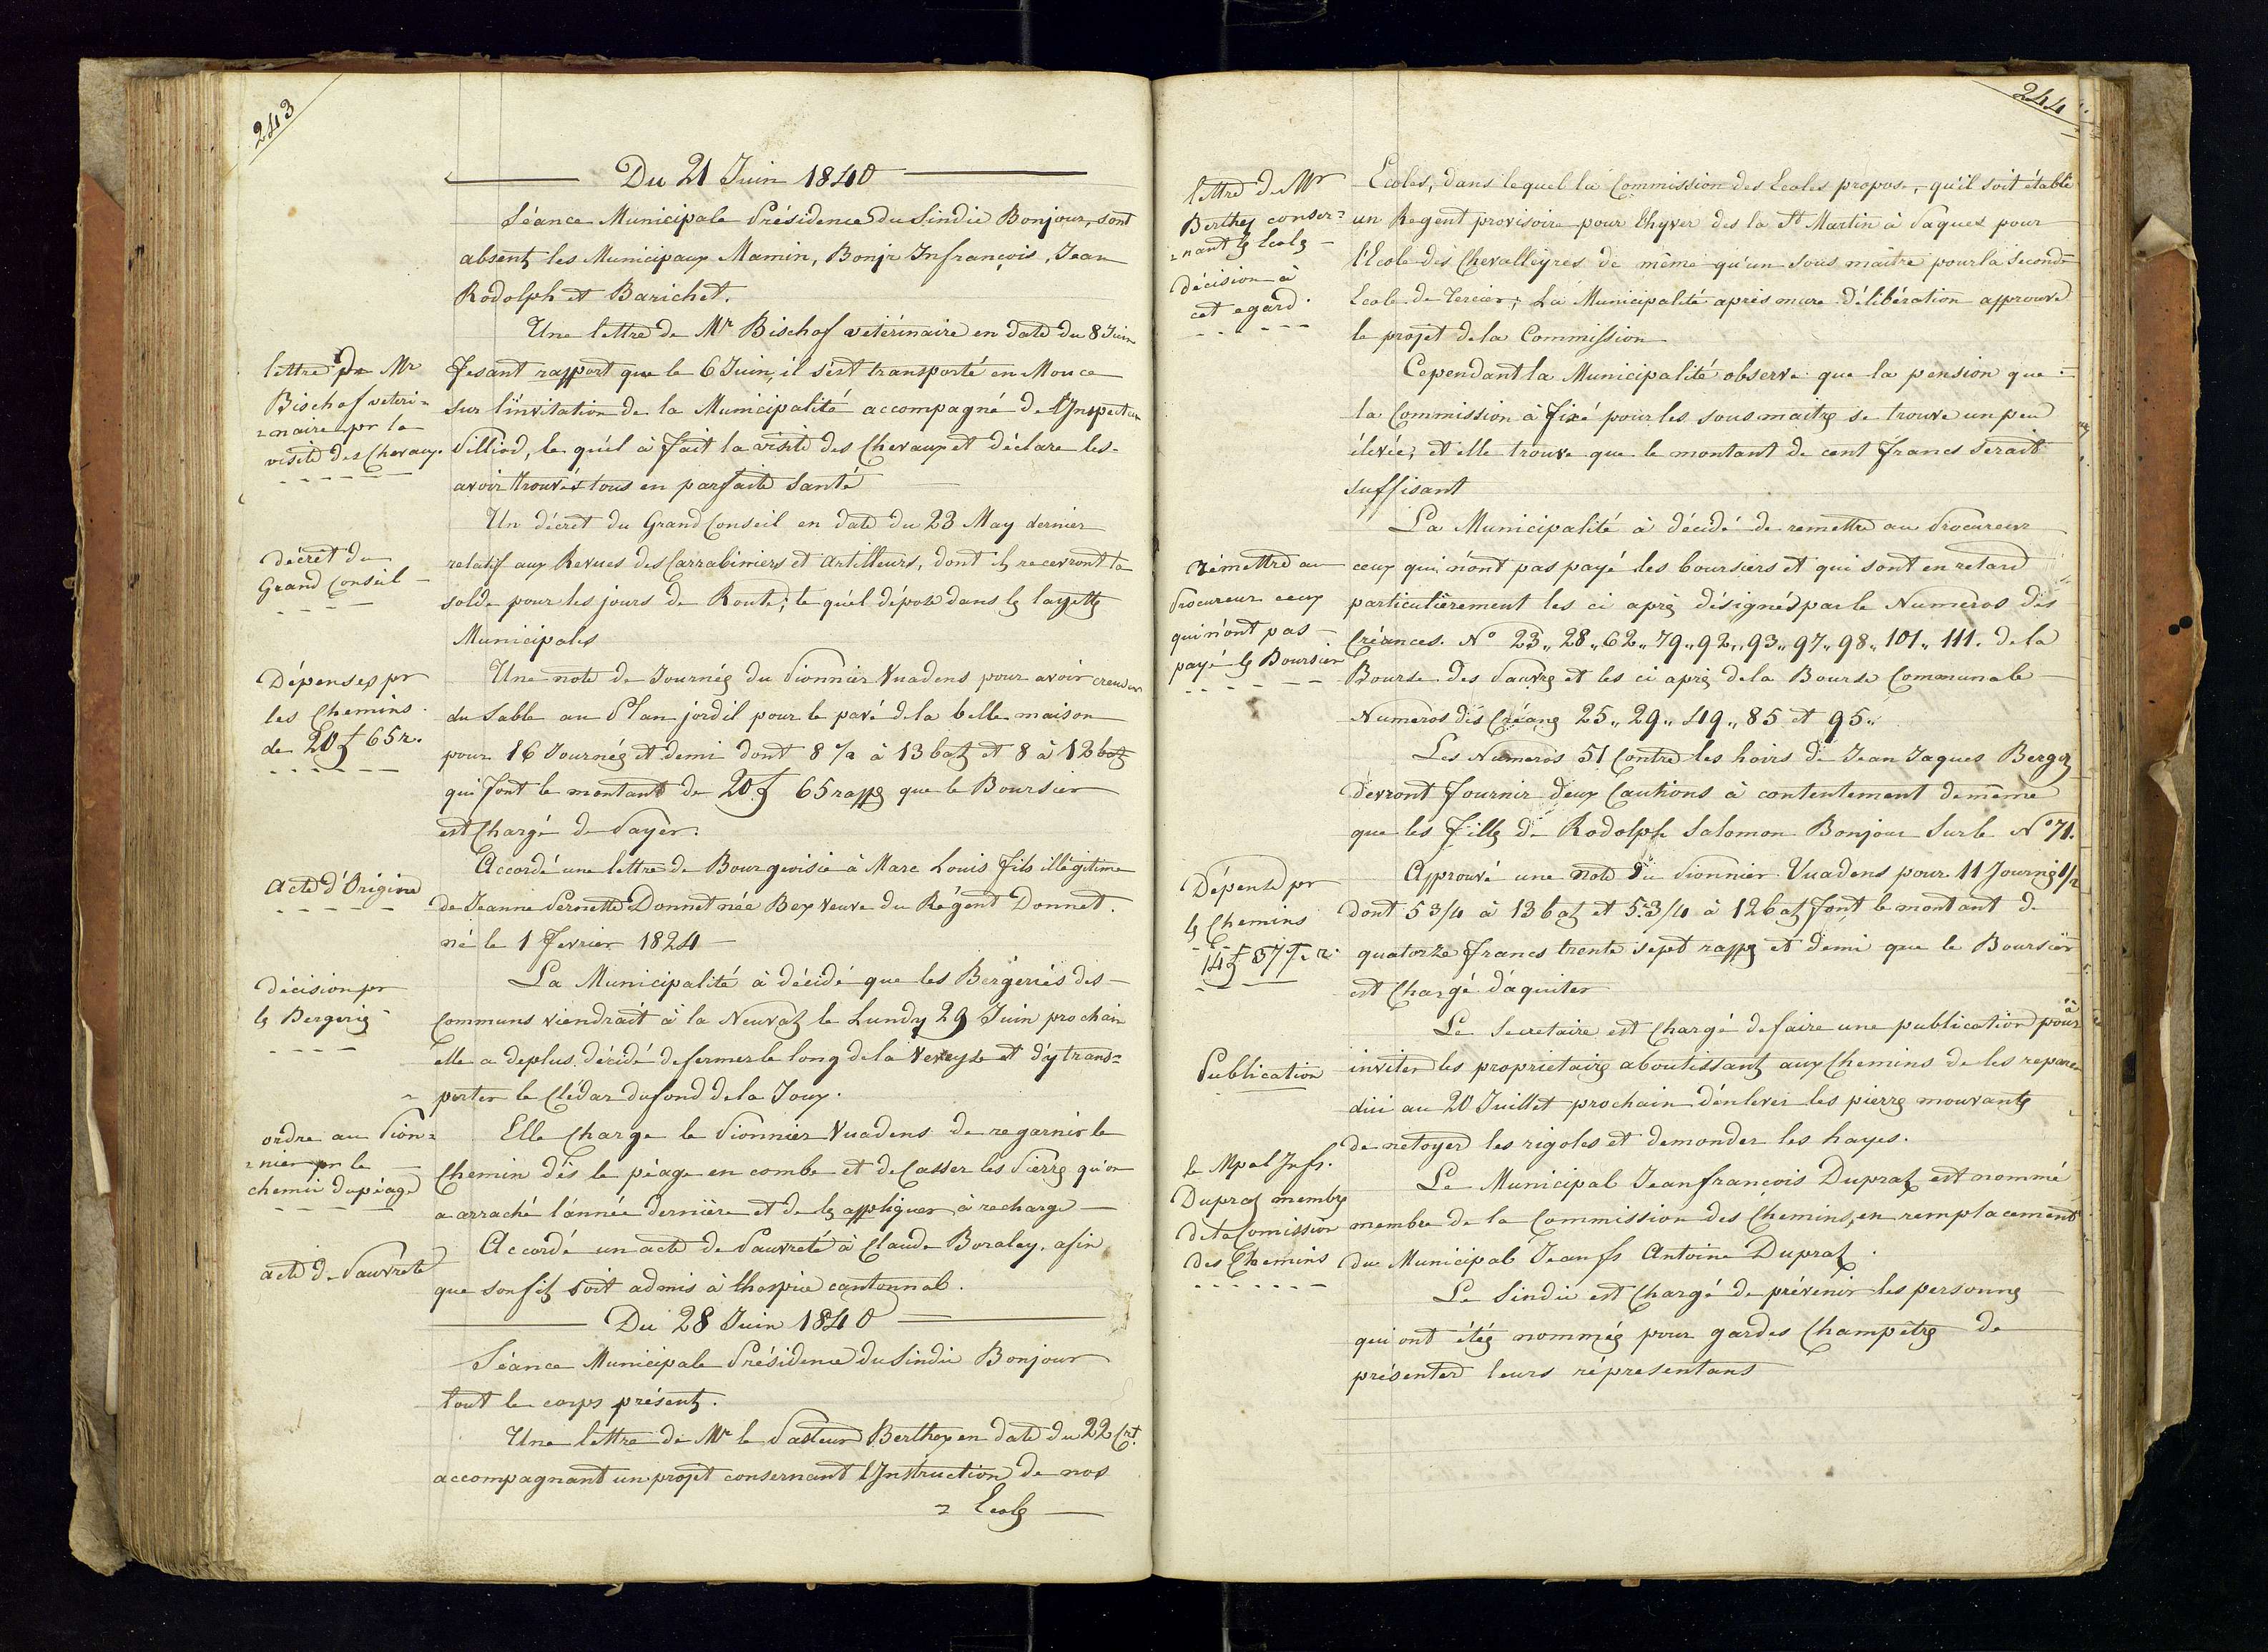 243
Du 21 Juin 1840
Séance Municipale Présidence du Sindic Bonjour, sont
absents les Municipaux Mamin, Bonjr Jnfrançois, Jean
Rodolph et Barichet.
Une lettre de Mr Bischof vetérinaire en date du 8 Juin
lettre de Mr
Bischof veteri=
=naire pr la
visite des Chevaux.
fesant rapport que le 6 Juin, il s'est transporté en Mouce
sur l'invitation de la Municipalité accompagné de l'Inspecteur
Pilliod, le quél à fait la visite des Chevaux et déclare les
avoir trouvés tous en parfaite Santé
Un décret du Grand Conseil en date du 23 May dernier
décret du
Grand Conseil
relatif aux Revues des Carrabiniers et artilleurs, dont ils recevront la
solde pour les jours de Route; le quél déposé dans les layettes
Municipales
Dépenses pr
les Chemins
de 20 f 65 r.
Une note de Journées du Pionnier Vuadens pour avoir creuser
du Sable au Plan jordil pour le pavé de la belle maison
pour 16 Journées et demi dont 8 ½ à 13 batz et 8 à 12 batz
qui font le montant de 20 f 65 rapps que le Boursier
est Chargé de Payer.
acte d'Origine
Accordé une lettre de Bourgeoisie à Marc Louis fils illégitime
de Jeanne Pernette Donnet née Bex veuve du Régent Donnet.
né le 1 fevrier 1824
décision pr
les Bergeries
La Municipalité à décidé que les Bergeries des
Communs viendrait à la Neuvaz le Lundy 29 Juin prochain
elle a deplus décidé de fermer le long de la Veveyse et d'y trans=
porter le Clédar du fond de la Joux.
ordre au Pion=
=nier pr le
chemin du péage
Elle Charge le Pionnier Vuadens de regarnir le
Chemin dès le péage en combe et de Casser les Pierres qu'on
a arraché l'année dernière et de les appliquer à recharge
acte de Pauvreté
Accordé un acte de Pauvreté à Claude Boraley, afin
que son fils soit admis à l'hospice cantonnal.
Du 28 Juin 1840
Séance Municipale Présidence du Sindic Bonjour
tout le corps présent.
Une lettre de Mr le Pasteur Berthex en date du 22 Crt.
accompagnant un projet consernant l'Instruction de nos
= Ecoles
244
lettre de Mr
Berthex conser=
=nant les Ecoles
décision à
cet egard.
Ecoles, dans lequel la Commission des Ecoles propose, qu'il soit établi
un Regent provisoire pour l'hyver des la St Martin à Paques pour
l'Ecole des Chevalleyres de même qu'un sous maître pour la seconde
Ecole de Tercier; La Municipalité après mure délibération approuve
le projet de la Commission
Cependant la Municipalité observe que la pension que
la Commission à fixé pour les sous maitres se trouve un peu
élevée; et elle trouve que le montant de cent francs serait
suffisant
La Municipalité à décidé de remettre au Procureur
rémettre au
Procureur ceux
qui n'ont pas
payé les Boursier
ceux qui n'ont pas payé les boursiers et qui sont en retard
particulièrement les ci après désignés par le Numeros des
Créances. No 23,, 28,, 62,, 79,, 92,, 93,, 97,, 98,, 101,, 111. de la
Bourse des Pauvres et les ci après de la Bourse Communale
Numeros des Créances 25,, 29,, 49,, 85 et 95,,
Les Numeros 51 Contre les hoirs de Jean Jaques Berger
devront fournir deux Cautions à contentement de même
que les filles de Rodolphe Salomon Bonjour sur le No 71.
Dépense pr
les Chemins
14 f 37 ½ r.
Approuvé une note du Pionnier Vuadens pour 11 Journées 1/2
dont 5 3/4 à 13 batz et 5 3/4 à 12 batz font le montant de
quatorze francs trente sept rapps et demi que le Boursier
est Chargé d'aquiter
Publication
Le Secretaire est Chargé de faire une publication pour
inviter les propriétaires aboutissants aux Chemins de les reparer
d'ici au 20 Juillet prochain d'enlever les pierres mouvantes
de netoyer les rigoles et demonder les hayes.
le Mpal Jnfs.
Dupraz membre
de la Comission
des Chemins
Le Municipal Jeanfrancois Dupraz est nommé
membre de la Commission des Chemins, en remplacement
du Municipal Jeanfs Antoine Dupraz.
Le Sindic est Chargé de prévenir les personnes
qui ont étés nommés pour gardes Champêtres de
présenter leurs réprésentans